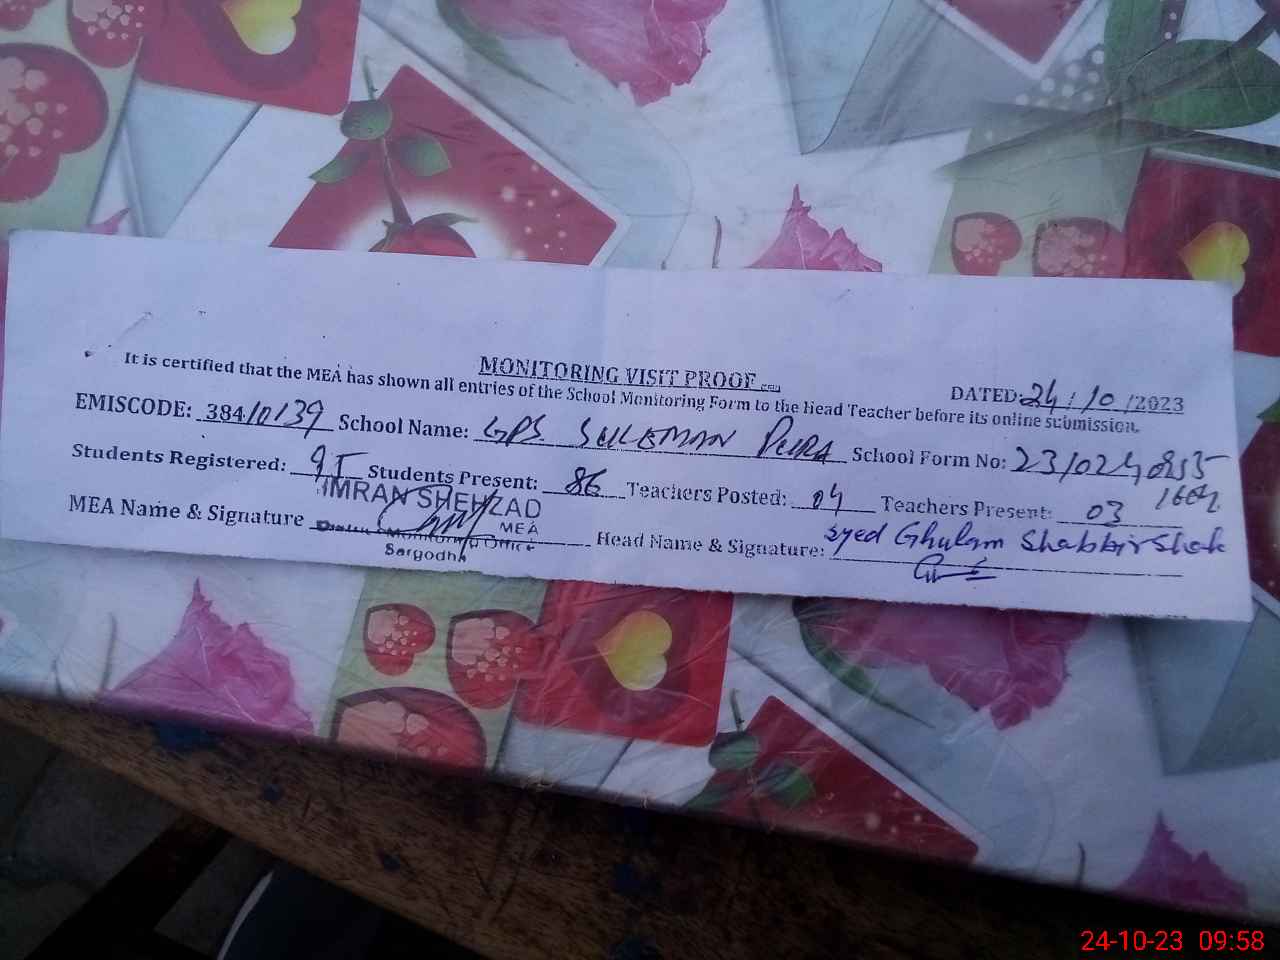 MONITORING VISIT PROOF
DATED: 24/10/2023
It is certified that the MEA has shown all entries of the School Monitoring Form to the Head Teacher before its online submission.
EMISCODE: 38410139 School Name: GPS SULEMAN PURA School Form No:
Students Registered: 95 Students Present: 86 Teachers Posted: 04 Teachers Present: 03
IMRAN SHEHZAD
MEA
MEA Name & Signature Head Name & Signature: Syed Ghulam Shabbir Shah
Monitoring Office
Sargodha
24-10-23 09:58